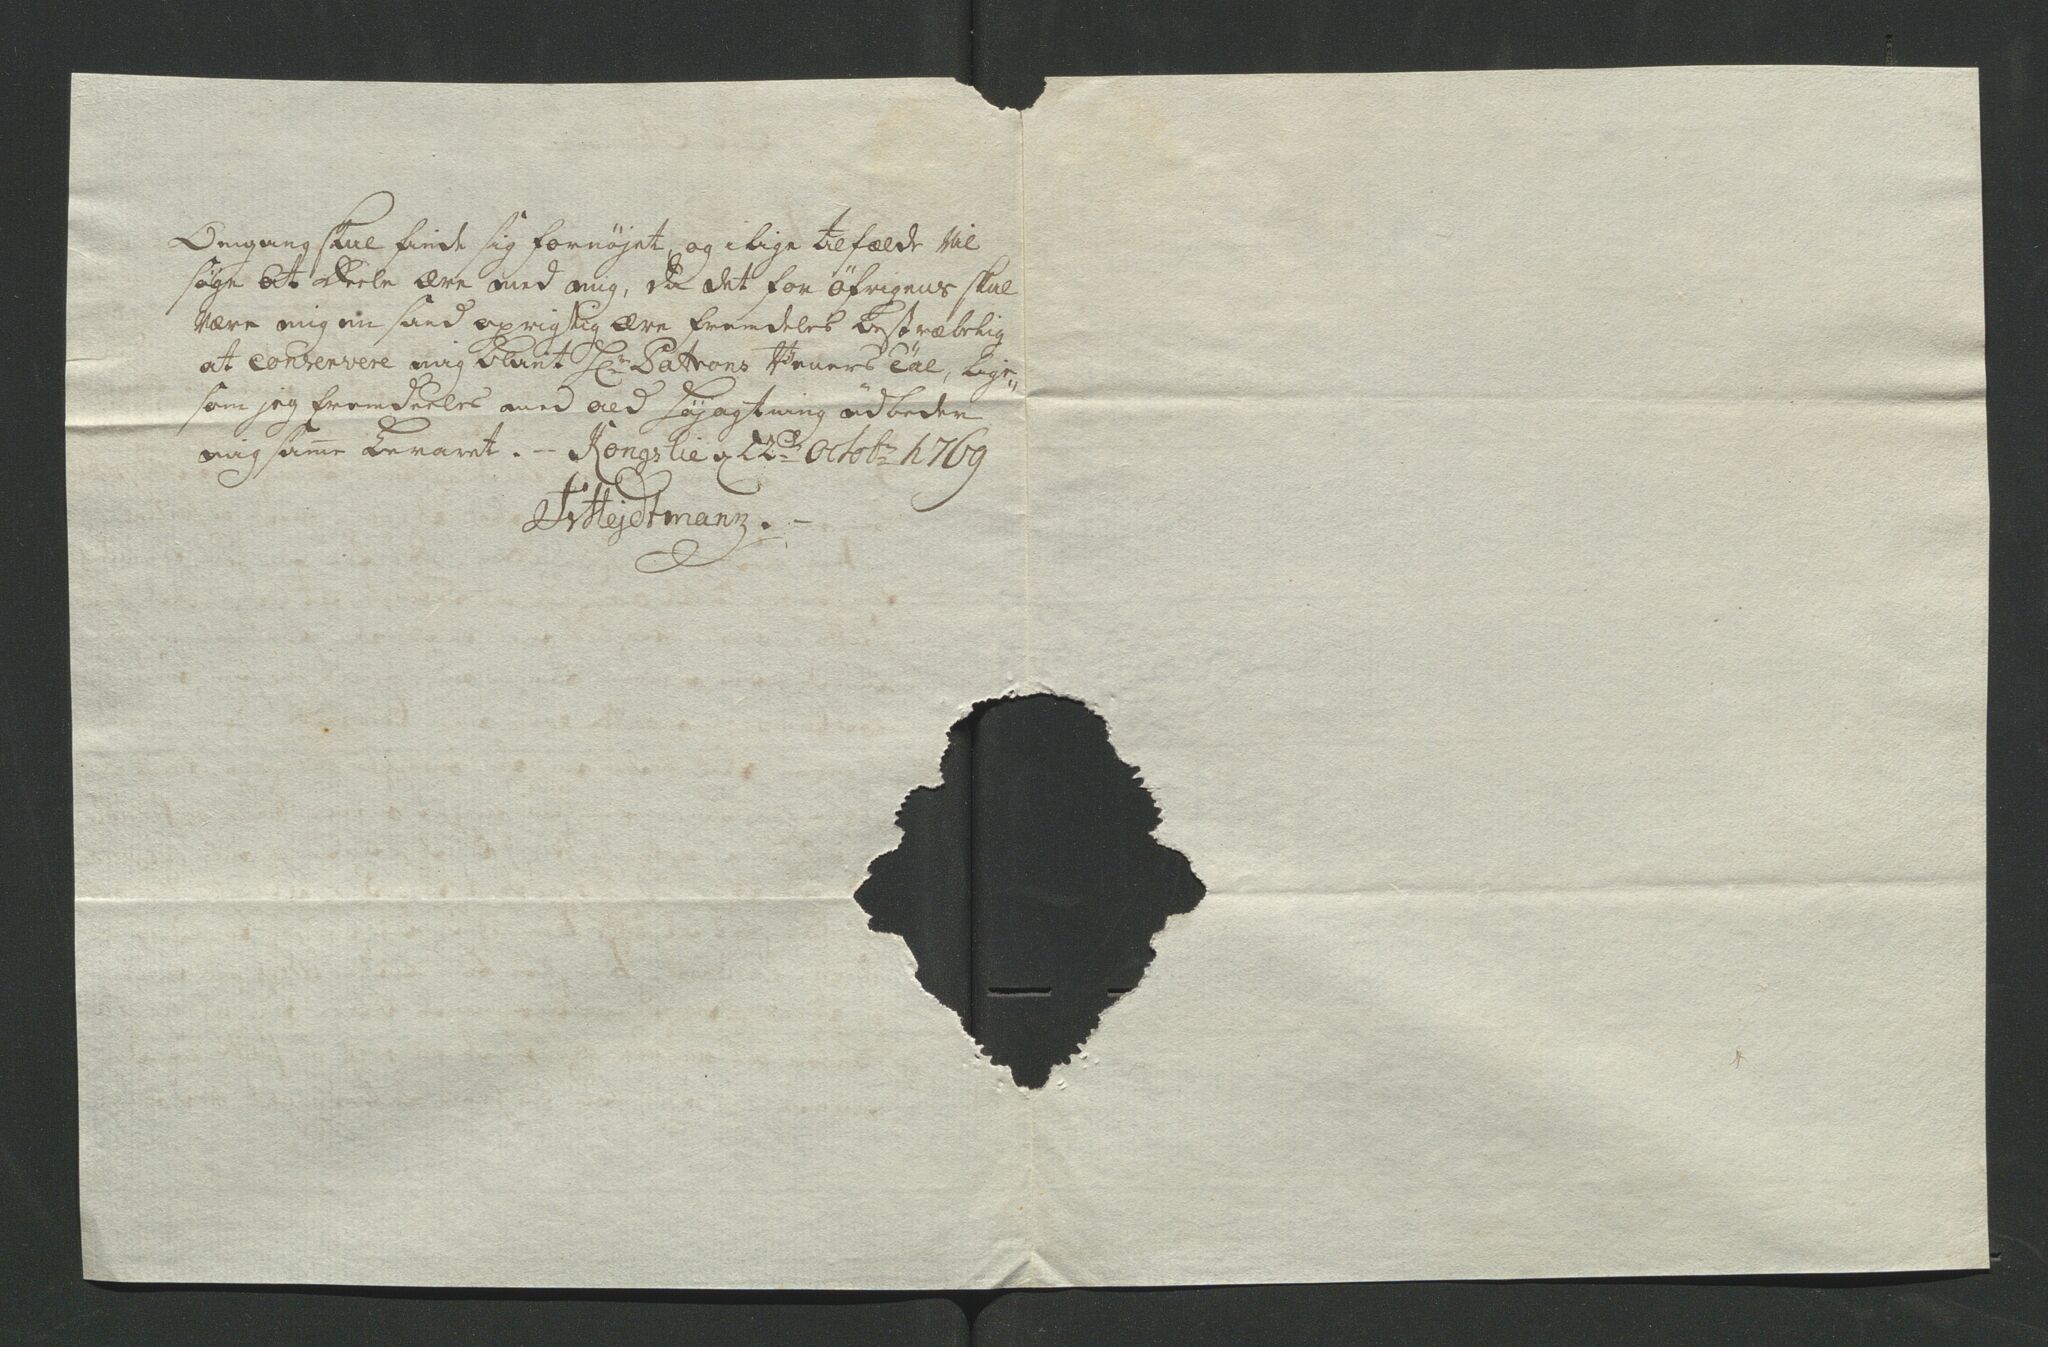 Omgang skal finde sig fornöjet, og i lige tilfælde vil
søge at deele ære med mig, da det for öfrigens skal
være mig en sand oprigtig ære fremdeles bestræbelig
at conservere mig blant Hr. Patrons Veners Tal, lige„
som jeg fremdeeles med ald Höjagtning udbeder
mig samme bevaret. – Kongslie d 22de Octobr 1769
Hejdtmann. –